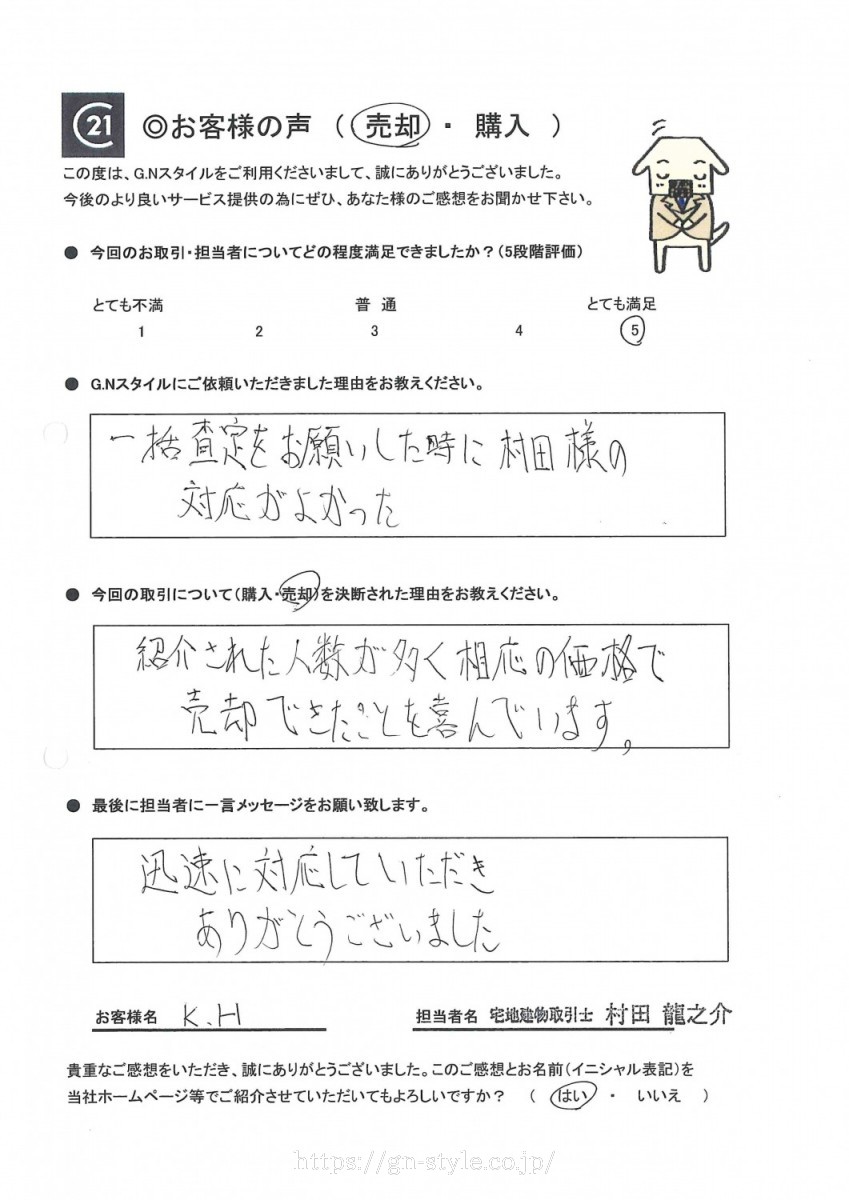 C21 ◎お客様の声 ( 売却 ・ 購入 )
この度は、G.Nスタイルをご利用くださいまして、誠にありがとうございました。
今後のより良いサービス提供の為にぜひ、あなた様のご感想をお聞かせ下さい。
● 今回のお取引・担当者についてどの程度満足できましたか？(5段階評価)
とても不満 普 通 とても満足
1 2 3 4 5
● G.Nスタイルにご依頼いただきました理由をお教えください。
一括査定をお願いした時に村田様の
対応がよかった
● 今回の取引について(購入・売却)を決断された理由をお教えください。
紹介された人数が多く相応の価格で
売却できたことを喜んでいます。
● 最後に担当者に一言メッセージをお願い致します。
迅速に対応していただき
ありがとうございました
お客様名 K.H 担当者名 宅地建物取引士 村田 龍之介
貴重なご感想をいただき、誠にありがとうございました。このご感想とお名前(イニシャル表記)を
当社ホームページ等でご紹介させていただいてもよろしいですか？ ( はい ・ いいえ )
https://gn-style.co.jp/